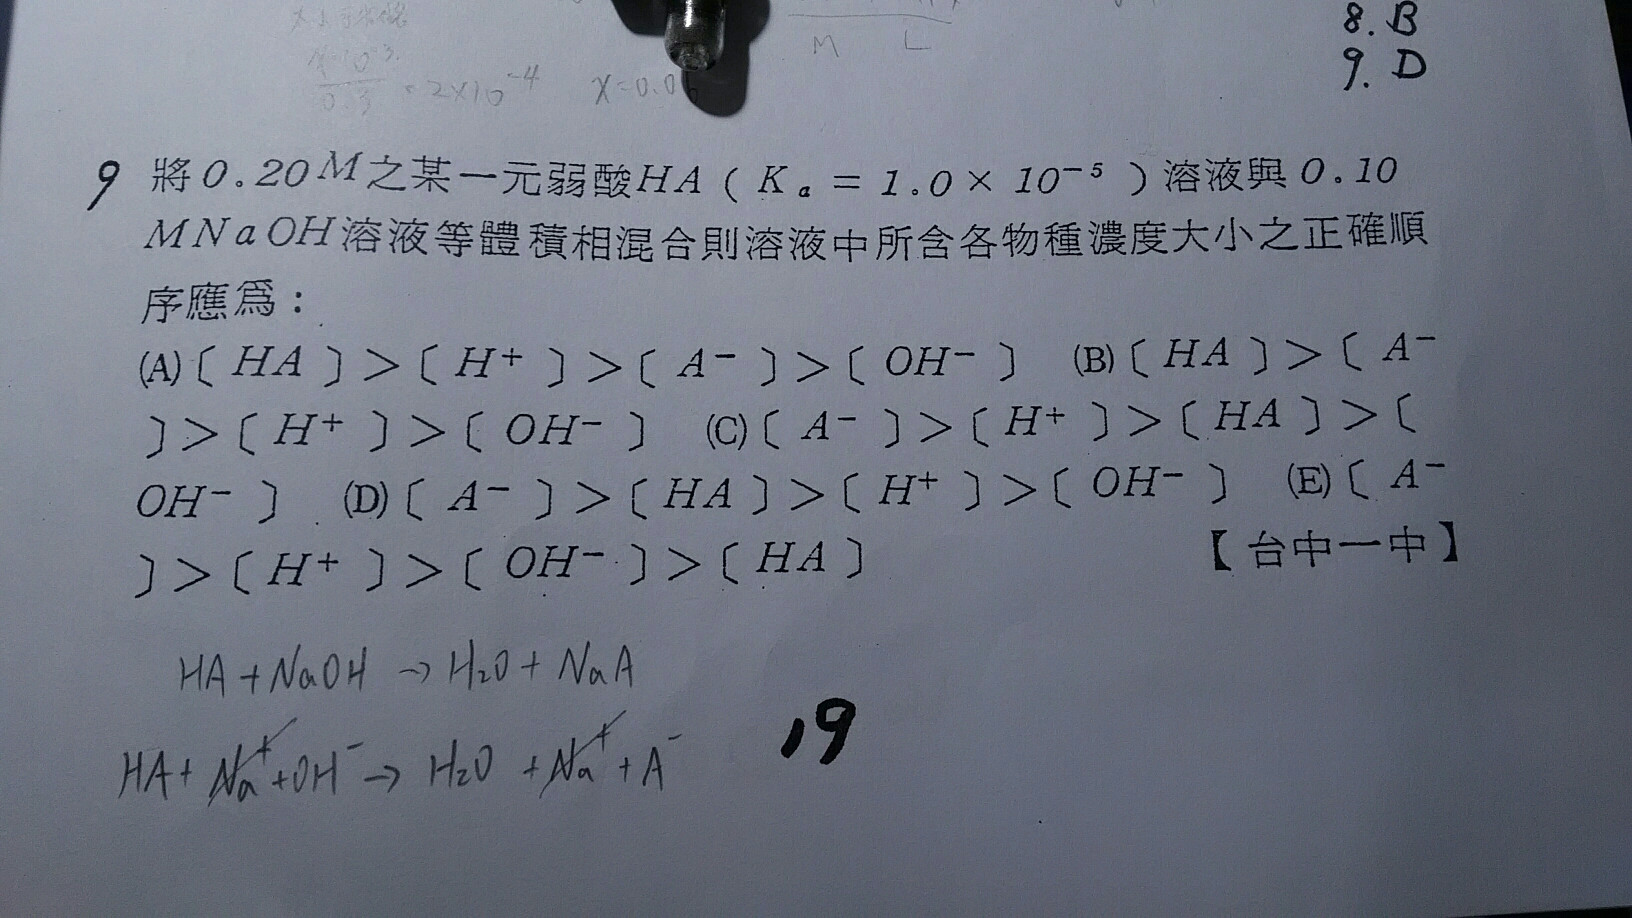 = 2×10⁻⁴ x=0.0
M L
8. B
9. D
9 將0.20M之某一元弱酸HA（Kₐ = 1.0× 10⁻⁵）溶液與0.10
MNaOH溶液等體積相混合則溶液中所含各物種濃度大小之正確順
序應為：
(A)〔HA〕>〔H⁺〕>〔A⁻〕>〔OH⁻〕 (B)〔HA〕>〔A⁻
〕>〔H⁺〕>〔OH⁻〕 (C)〔A⁻〕>〔H⁺〕>〔HA〕>〔
OH⁻〕 (D)〔A⁻〕>〔HA〕>〔H⁺〕>〔OH⁻〕 (E)〔A⁻
〕>〔H⁺〕>〔OH⁻〕>〔HA〕 【台中一中】
HA+NaOH → H₂O+ NaA
HA+ Na⁺+OH⁻ → H₂O +Na⁺ +A⁻
,9